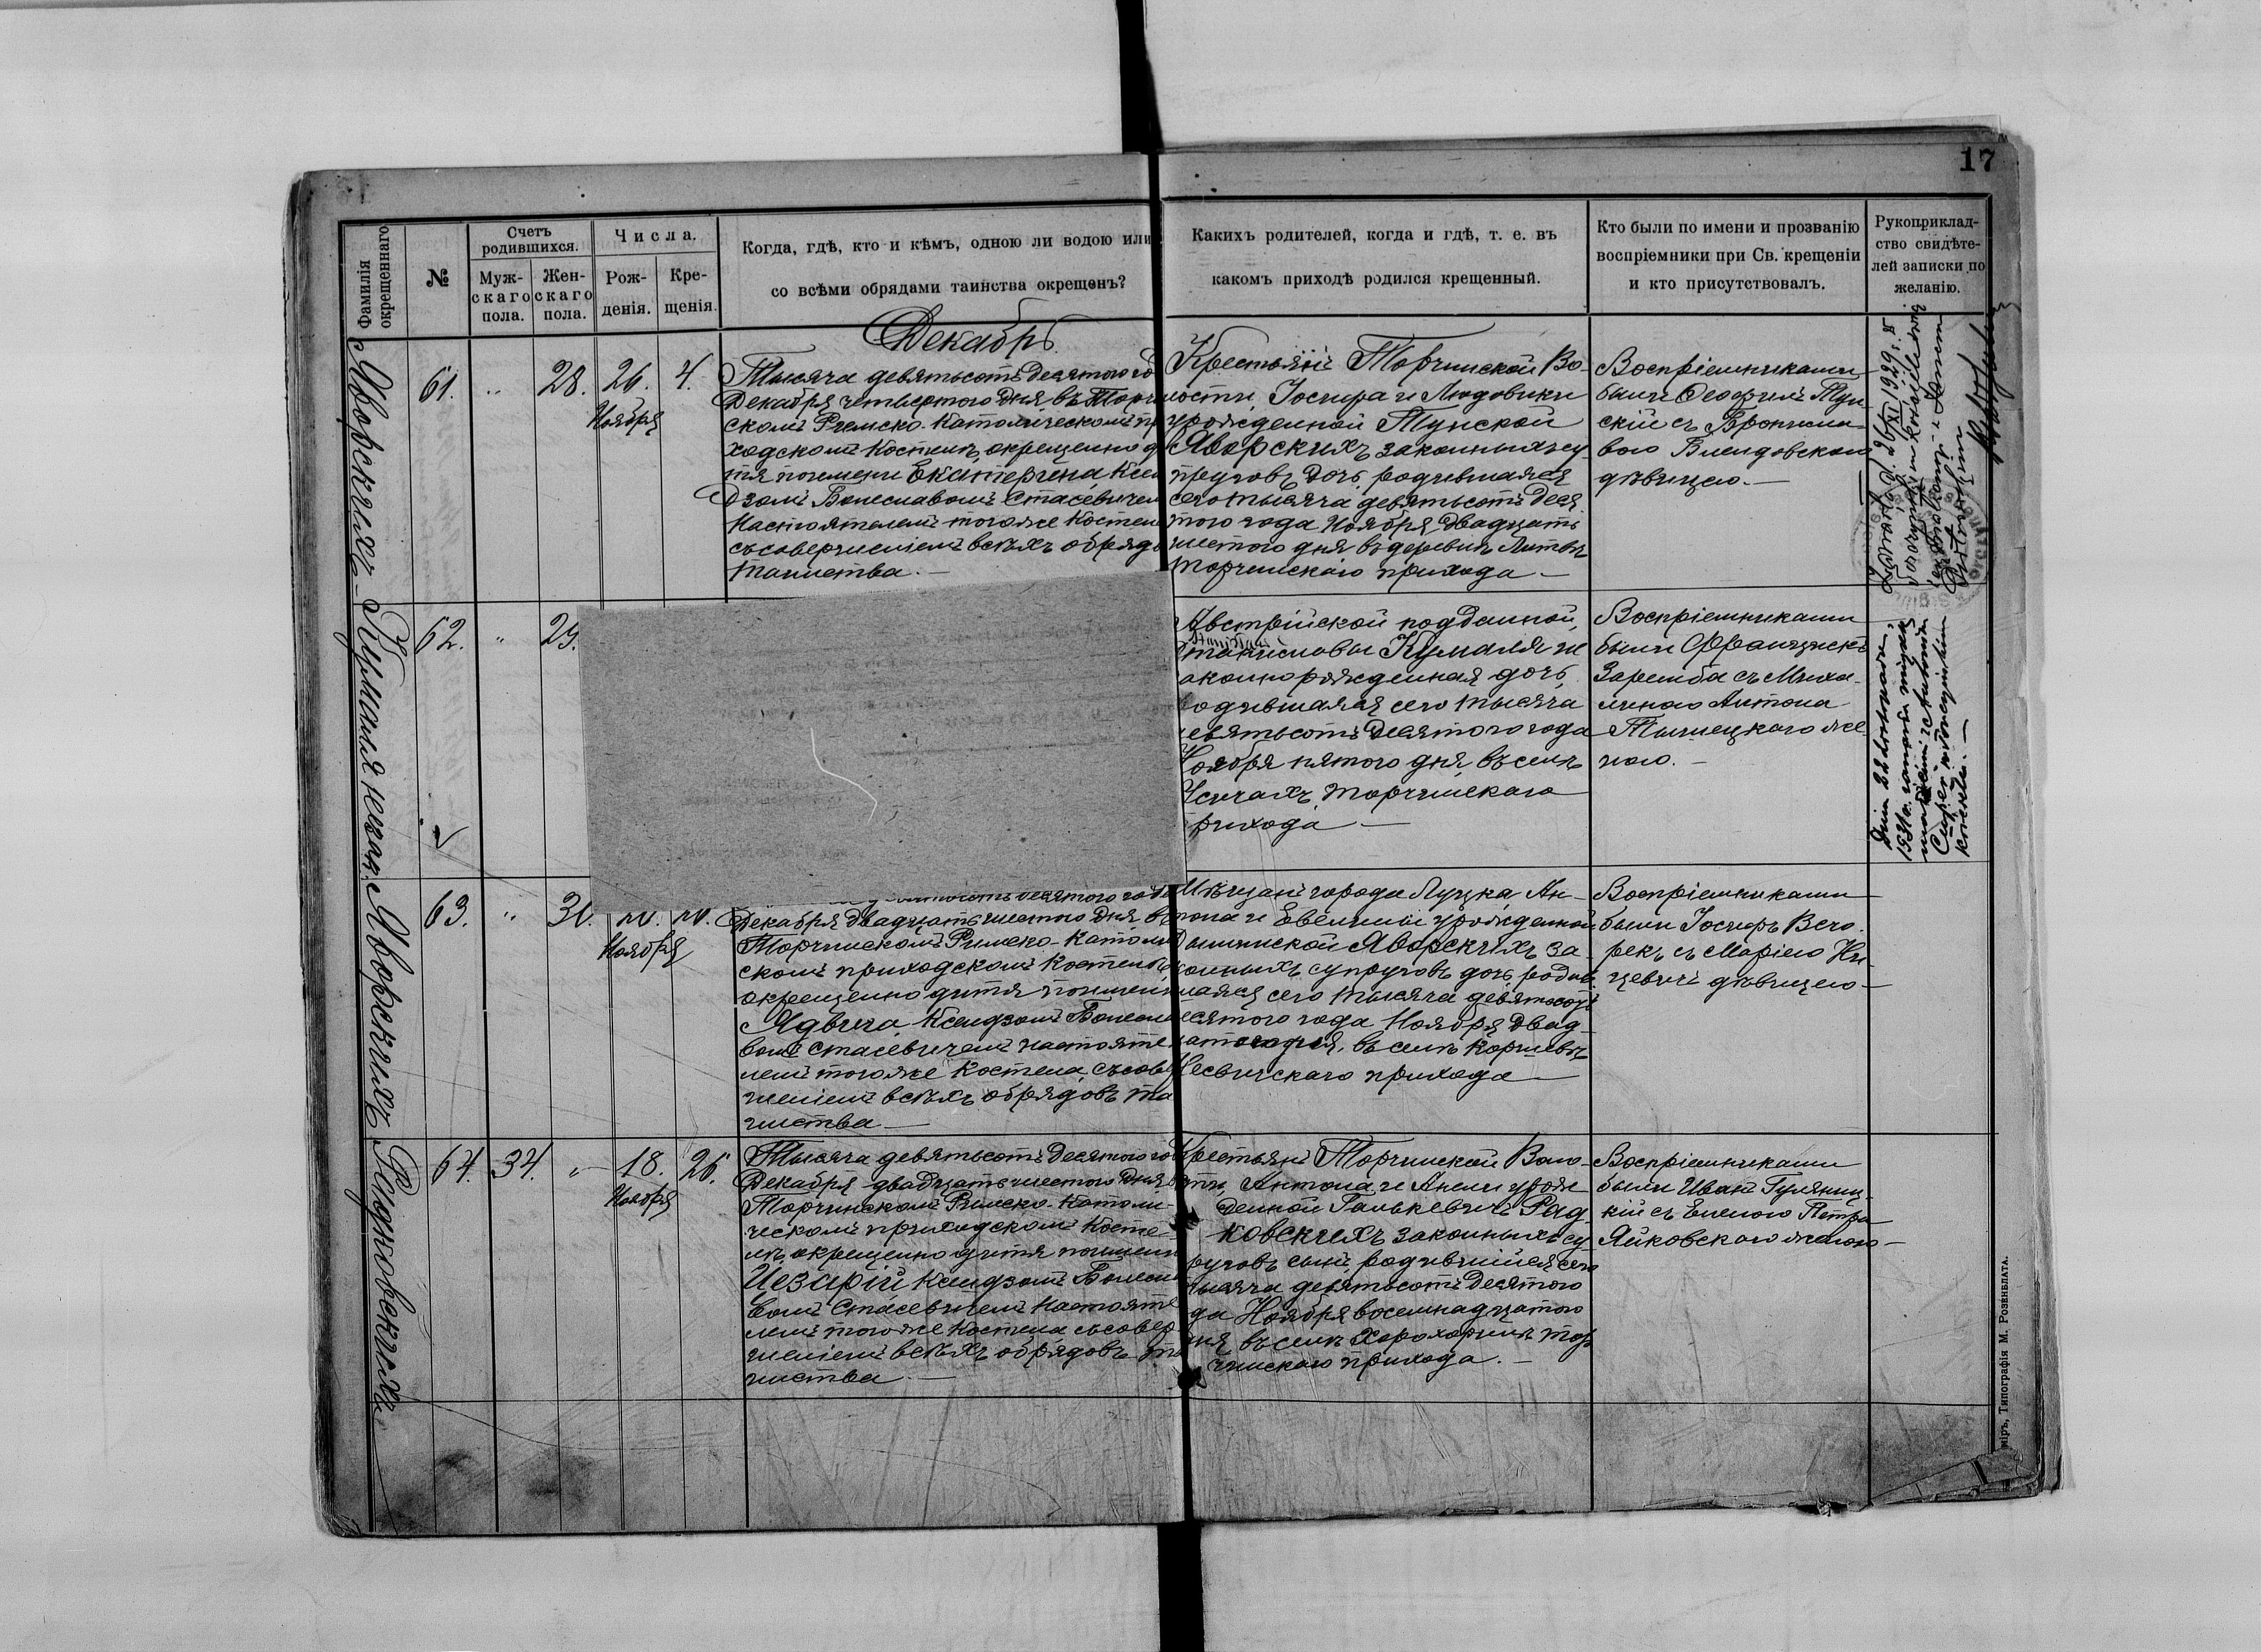 17
Фамилія
окрещеннаго
№
Счетъ
родившихся.
Муж-
скаго
пола.
Жен-
скаго
пола.
Числа.
Рож-
денія.
Кре-
щенія.
Когда, гдѣ, кто и кѣмъ, одною ли водою или
со всѣми обрядами таинства окрещенъ?
Какихъ родителей, когда и гдѣ, т. е. въ
какомъ приходѣ родился крещенный.
Кто были по имени и прозванію
воспріемники при Св. крещеніи
и кто присутствовалъ.
Рукоприклад-
ство свидѣте-
лей записки по
желанію.
Декабрь
Яворскихъ
61.
"
28.
26.
Ноября
4.
Тысяча девятьсотъ десятого го
Декабря четвертого дня, въ Торчи
скомъ Римско-Католическомъ пр
ходскомъ Костелѣ, окрещенно д
тя поимени Екатерина, Ксен
дзомъ Болеславомъ Стасевичем
Настоятелемъ тогоже Костел
съ совершеніемъ всѣхъ обрядо
таинства.—
Крестьянъ Торчинской Во-
лости, Іосифа и Людовики
урожденной Тунской
Яворскихъ законныхъ су
пруговъ дочь, родившаяся
сего тысяча девятьсотъ деся
того года Ноября двадцать
шестого дня въ деревнѣ Литвѣ
Торчинскаго прихода—
Воспріемниками
были Теофилъ Тун-
скій съ Брониславою
дѣвицею.—
Кумаля незак.
62.
"
29.
Австрійской подданной,
Станиславы Кумаля не
аконнорожденная дочь
одившаяся сего тысяча
евятьсотъ десятого года
Ноября пятого дня, въ селѣ
Усичахъ, Торчинскаго
рихода—
Воспріемниками
были Францискъ
Заремба съ Миха-
линою Антона
Тышецкаго же
ною.—
Яворскихъ
63.
"
30.
Ноября
десятого года
Декабря двадцать шестого дня, в
Торчинскомъ Римско-Католи
скомъ приходскомъ Костелѣ
окрещенно дитя поимени
Ядвига, Ксендзомъ Болесла
вомъ Стасевичемъ Настояте
лемъ тогоже Костела, съ сове
шеніемъ всѣхъ обрядовъ та
инства—
Мѣщанъ города Луцка Ан-
тона и Евелиніи урожденной
Яворскихъ за-
конныхъ супруговъ дочь, родив
шаяся сего тысяча девятьсотъ
есятого года Ноября двад-
цатого дня, въ селѣ Коршевѣ
Несвичскаго прихода—
Воспріемниками
были Іосифъ Вечо-
рекъ съ Маріею Ни-
цевичъ дѣвицею—
Радковскихъ
64.
34.
"
18.
Ноября
26.
Тысяча девятьсотъ десятого го
Декабря двадцать шестого дня
Торчинскомъ Римско-Католи-
ческомъ приходскомъ Косте-
лѣ, окрещенно дитя поимени
Цезарій Ксендзомъ Болесла
вомъ Стасевичемъ Настояте
лемъ тогоже Костела съ совер-
шеніемъ всѣхъ обрядовъ та
инства.—
Крестьянъ Торчинской Воло-
сти, Антона и Анели урож
денной Галькевичъ Рад-
ковскихъ законныхъ су
руговъ сынъ, родившійся сего
тысяча девятьсотъ десятого
да Ноября восемнадцатого
ня, въ селѣ Хорохоринѣ Тор
чинскаго прихода.—
Воспріемниками
были Иванъ Гуляниц-
кій съ Еленою Петра
Яйковскаго женою—
міръ, Типографія М. Розенблата.